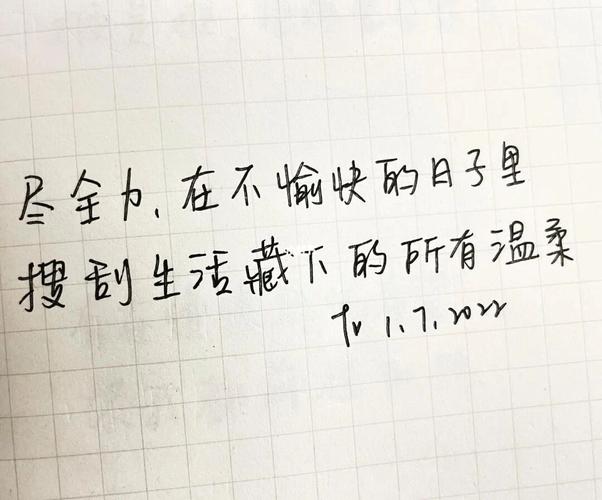 尽全力,在不愉快的日子里
搜刮生活藏下的所有温柔
1.7.2022